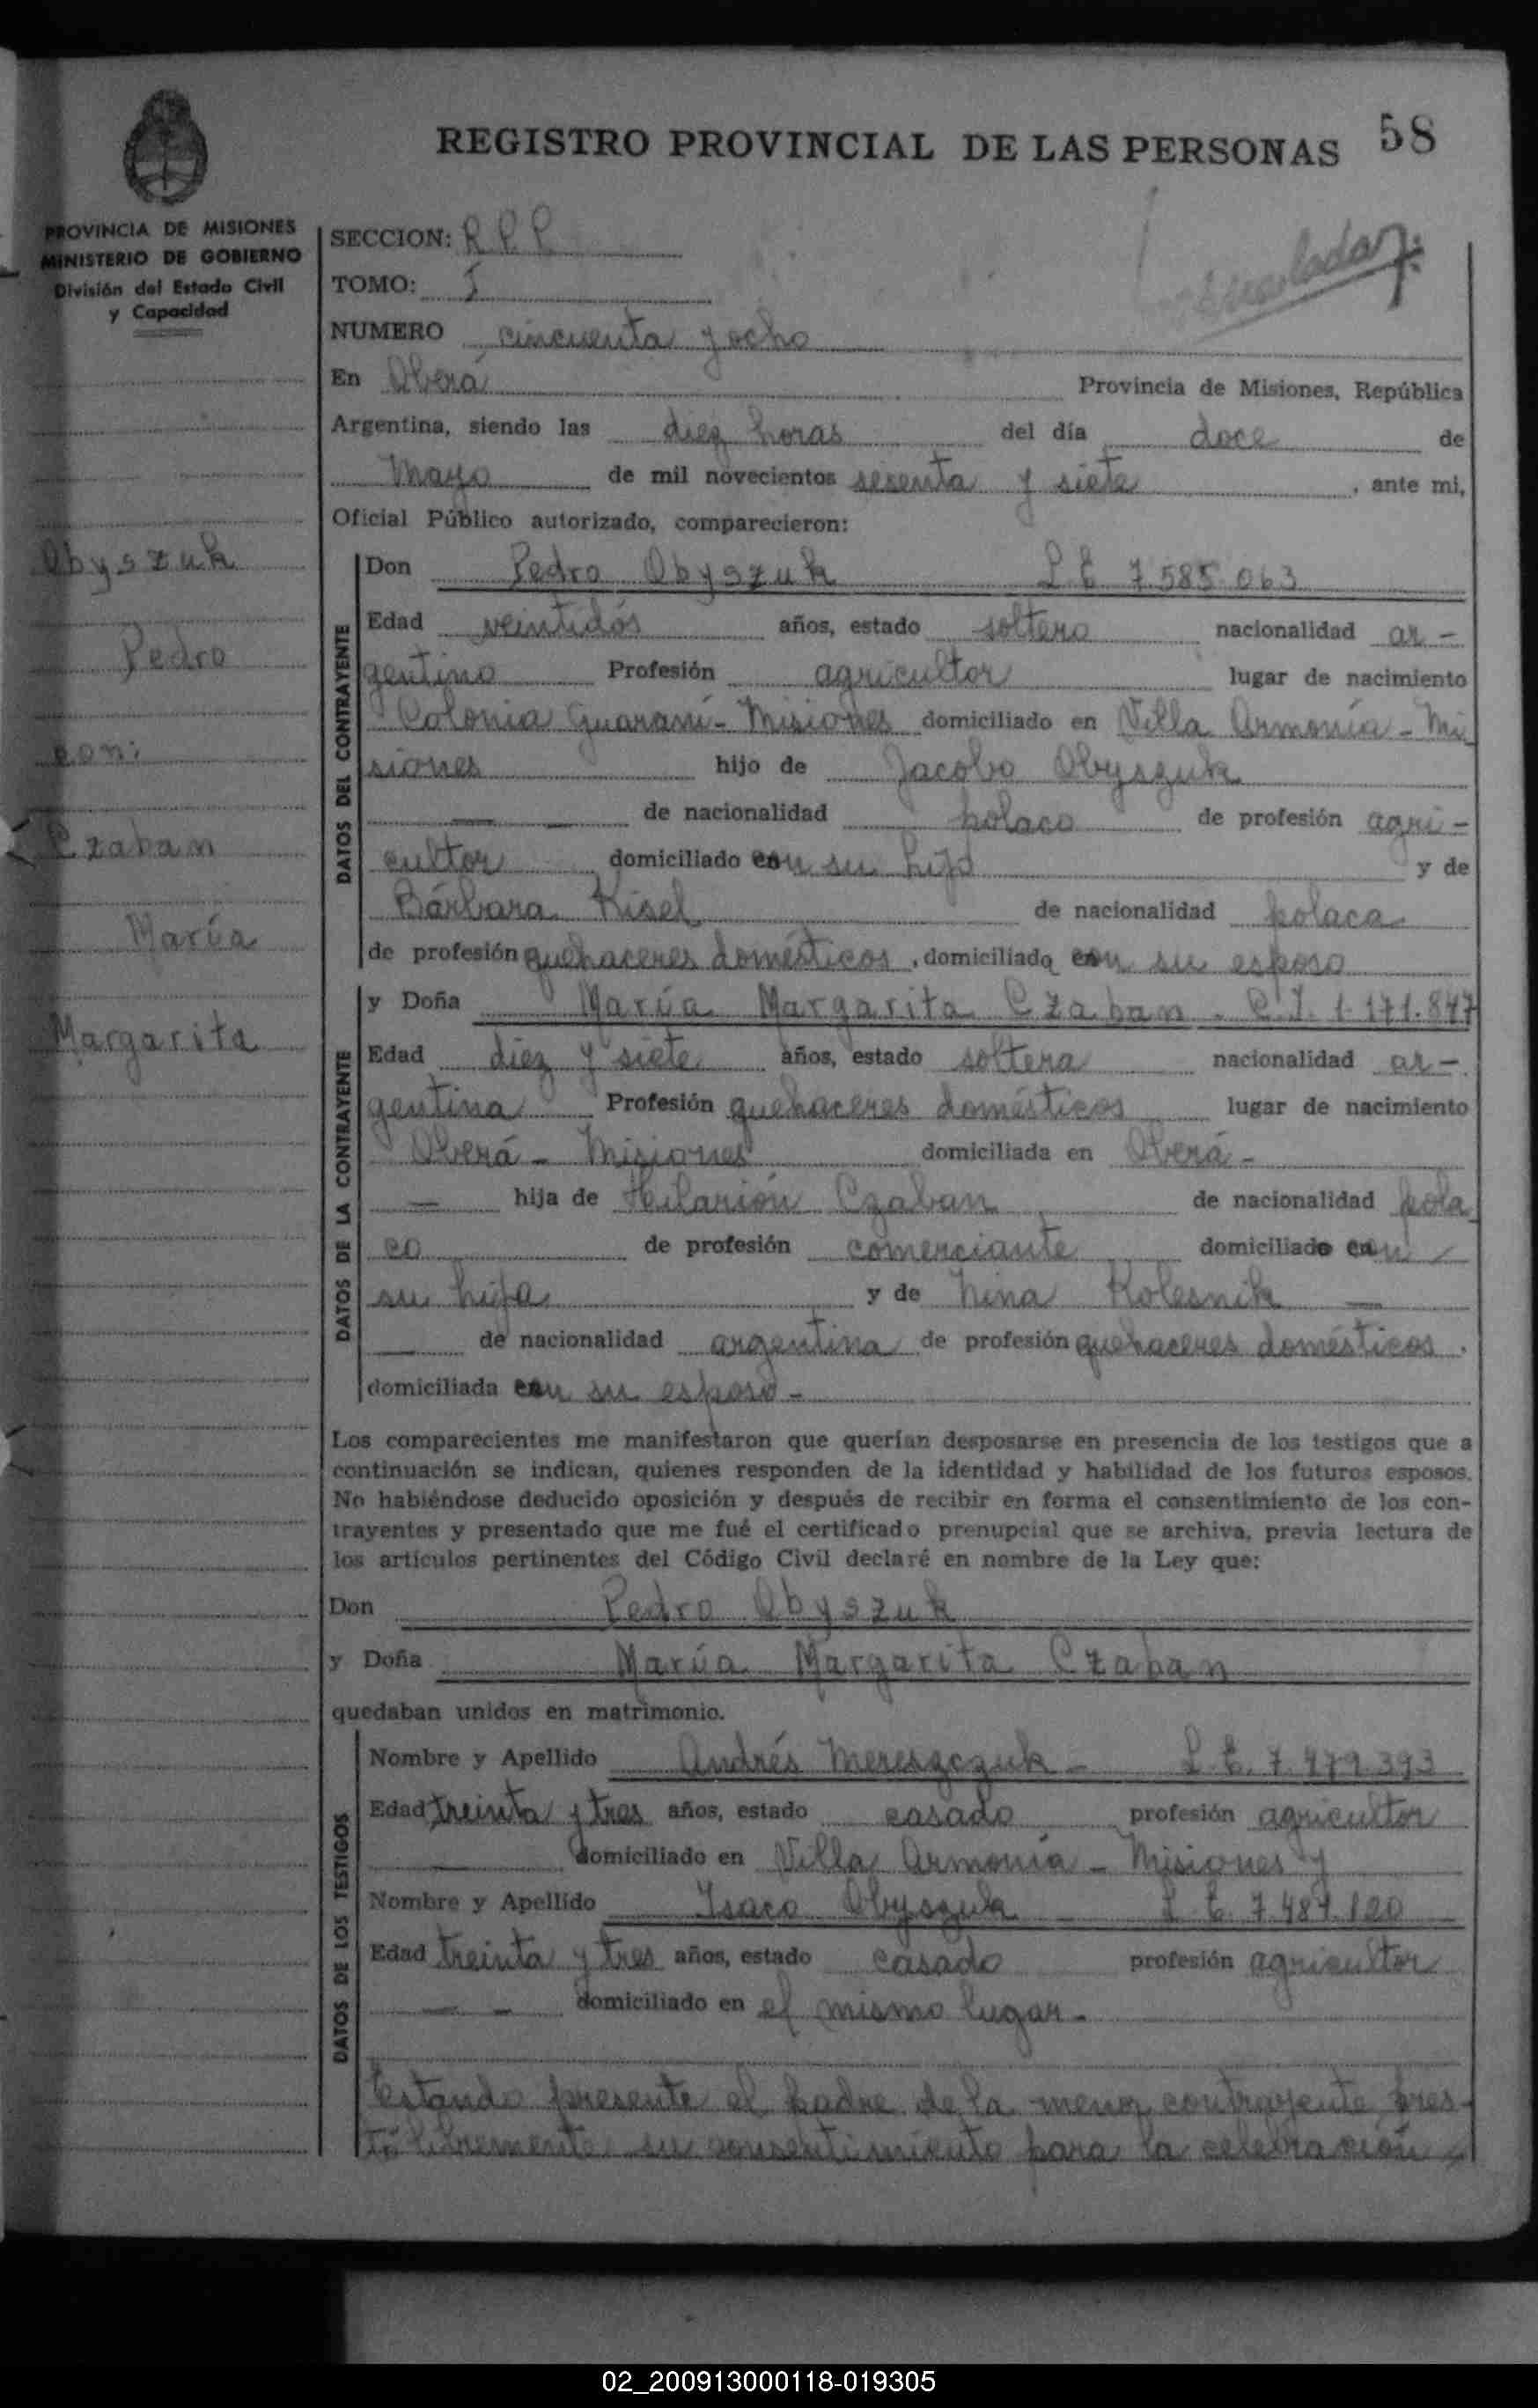 REGISTRO PROVINCIAL DE LAS PERSONAS 58
PROVINCIA DE MISIONES
MINISTERIO DE GOBIERNO
División del Estado Civil
y Capacidad
Obyszuk
Pedro
con:
Czaban
María
Margarita
SECCION: R P P
TOMO: I
NUMERO cincuenta y ocho
En Oberá Provincia de Misiones, República
Argentina, siendo las diez horas del día doce de
Mayo de mil novecientos sesenta y siete, ante mi,
Oficial Público autorizado, comparecieron:
DATOS DEL CONTRAYENTE
Don Pedro Obyszuk L E 7.585.063
Edad veintidós años, estado soltero nacionalidad ar-
gentino Profesión agricultor lugar de nacimiento
Colonia Guaraní - Misiones domiciliado en Villa Armonía - Mi
siones hijo de Jacobo Obyszuk
— — de nacionalidad polaco de profesión agri-
cultor domiciliado con su hijo y de
Bárbara Kisel de nacionalidad polaca
de profesión quehaceres domésticos, domiciliada con su esposo
DATOS DE LA CONTRAYENTE
y Doña María Margarita Czaban - C.I. 1.171.847
Edad diez y siete años, estado soltera nacionalidad ar-
gentina Profesión quehaceres domésticos lugar de nacimiento
Oberá - Misiones domiciliada en Oberá -
— hija de Hilarión Czaban de nacionalidad pola
co de profesión comerciante domiciliado con
su hija y de Nina Kolesnik —
— de nacionalidad argentina de profesión quehaceres domésticos.
domiciliada con su esposo -
Los comparecientes me manifestaron que querían desposarse en presencia de los testigos que a
continuación se indican, quienes responden de la identidad y habilidad de los futuros esposos.
No habiéndose deducido oposición y después de recibir en forma el consentimiento de los con-
trayentes y presentado que me fué el certificado prenupcial que se archiva, previa lectura de
los artículos pertinentes del Código Civil declaré en nombre de la Ley que:
Don Pedro Obyszuk
y Doña María Margarita Czaban
quedaban unidos en matrimonio.
DATOS DE LOS TESTIGOS
Nombre y Apellido Andrés Mereszczuk - L.E. 7.479.393
Edad treinta y tres años, estado casado profesión agricultor
— domiciliado en Villa Armonía - Misiones y
Nombre y Apellido Isaco Obyszuk L E 7.487.120
Edad treinta y tres años, estado casado profesión agricultor
— — domiciliado en el mismo lugar -
Estando presente el padre de la menor contrayente pres-
tó libremente su consentimiento para la celebración
02_200913000118-019305